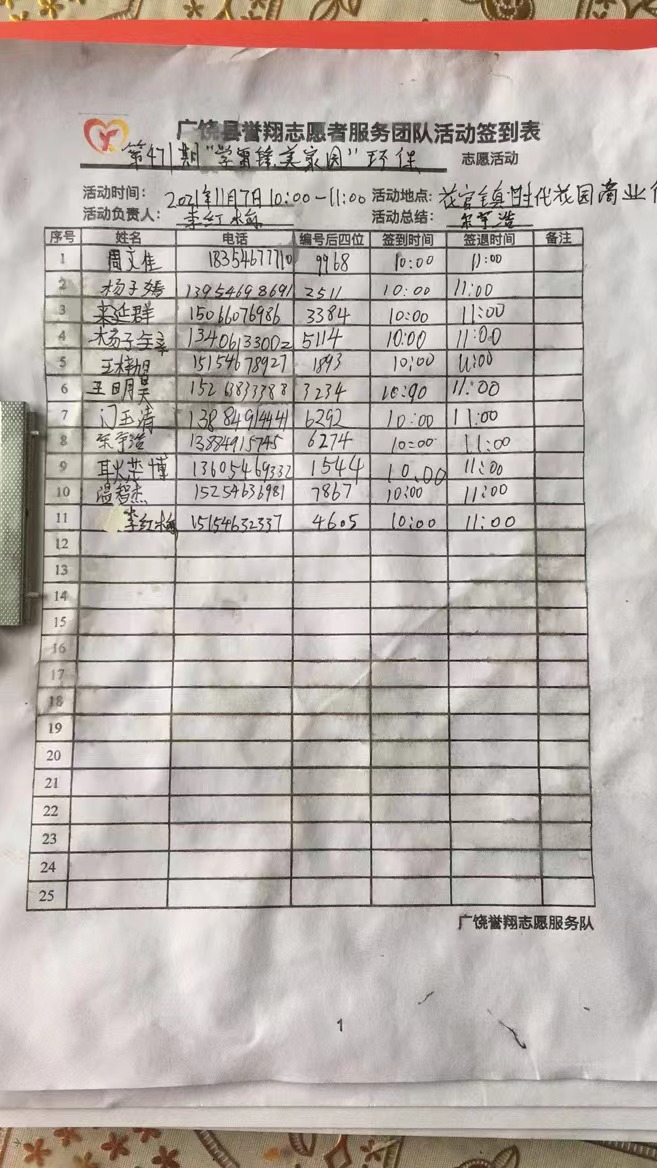 广饶县誉翔志愿者服务团队活动签到表
第471期"学雷锋美家园"环保 志愿活动
活动时间: 2021年11月7日10:00-11:00 活动地点: 花官镇时代花园商业
活动负责人: 李红梅 活动总结:
序号 姓名 电话 编号后四位 签到时间 签退时间 备注
1 周文佳 18354677710 9968 10:00 11:00
2 杨子嫣 13954698691 2511 10:00 11:00
3 栾延群 15066076986 3384 10:00 11:00
4 杨子 13406133002 5114 10:00 11:00
5 王梓旭 15154678927 1893 10:00 11:00
6 王明昊 3234 10:00 11:00
7 门玉涛 13884914441 6292 10:00 11:00
8 13884915745 6274 10:00 11:00
9 耿荣博 13605469332 1544 10.00 11:00
10 温智杰 15254636981 7867 10:00 11:00
11 李红梅 15154632337 4605 10:00 11:00
12
13
14
15
16
17
18
19
20
21
22
23
24
25
广饶誉翔志愿服务队
1